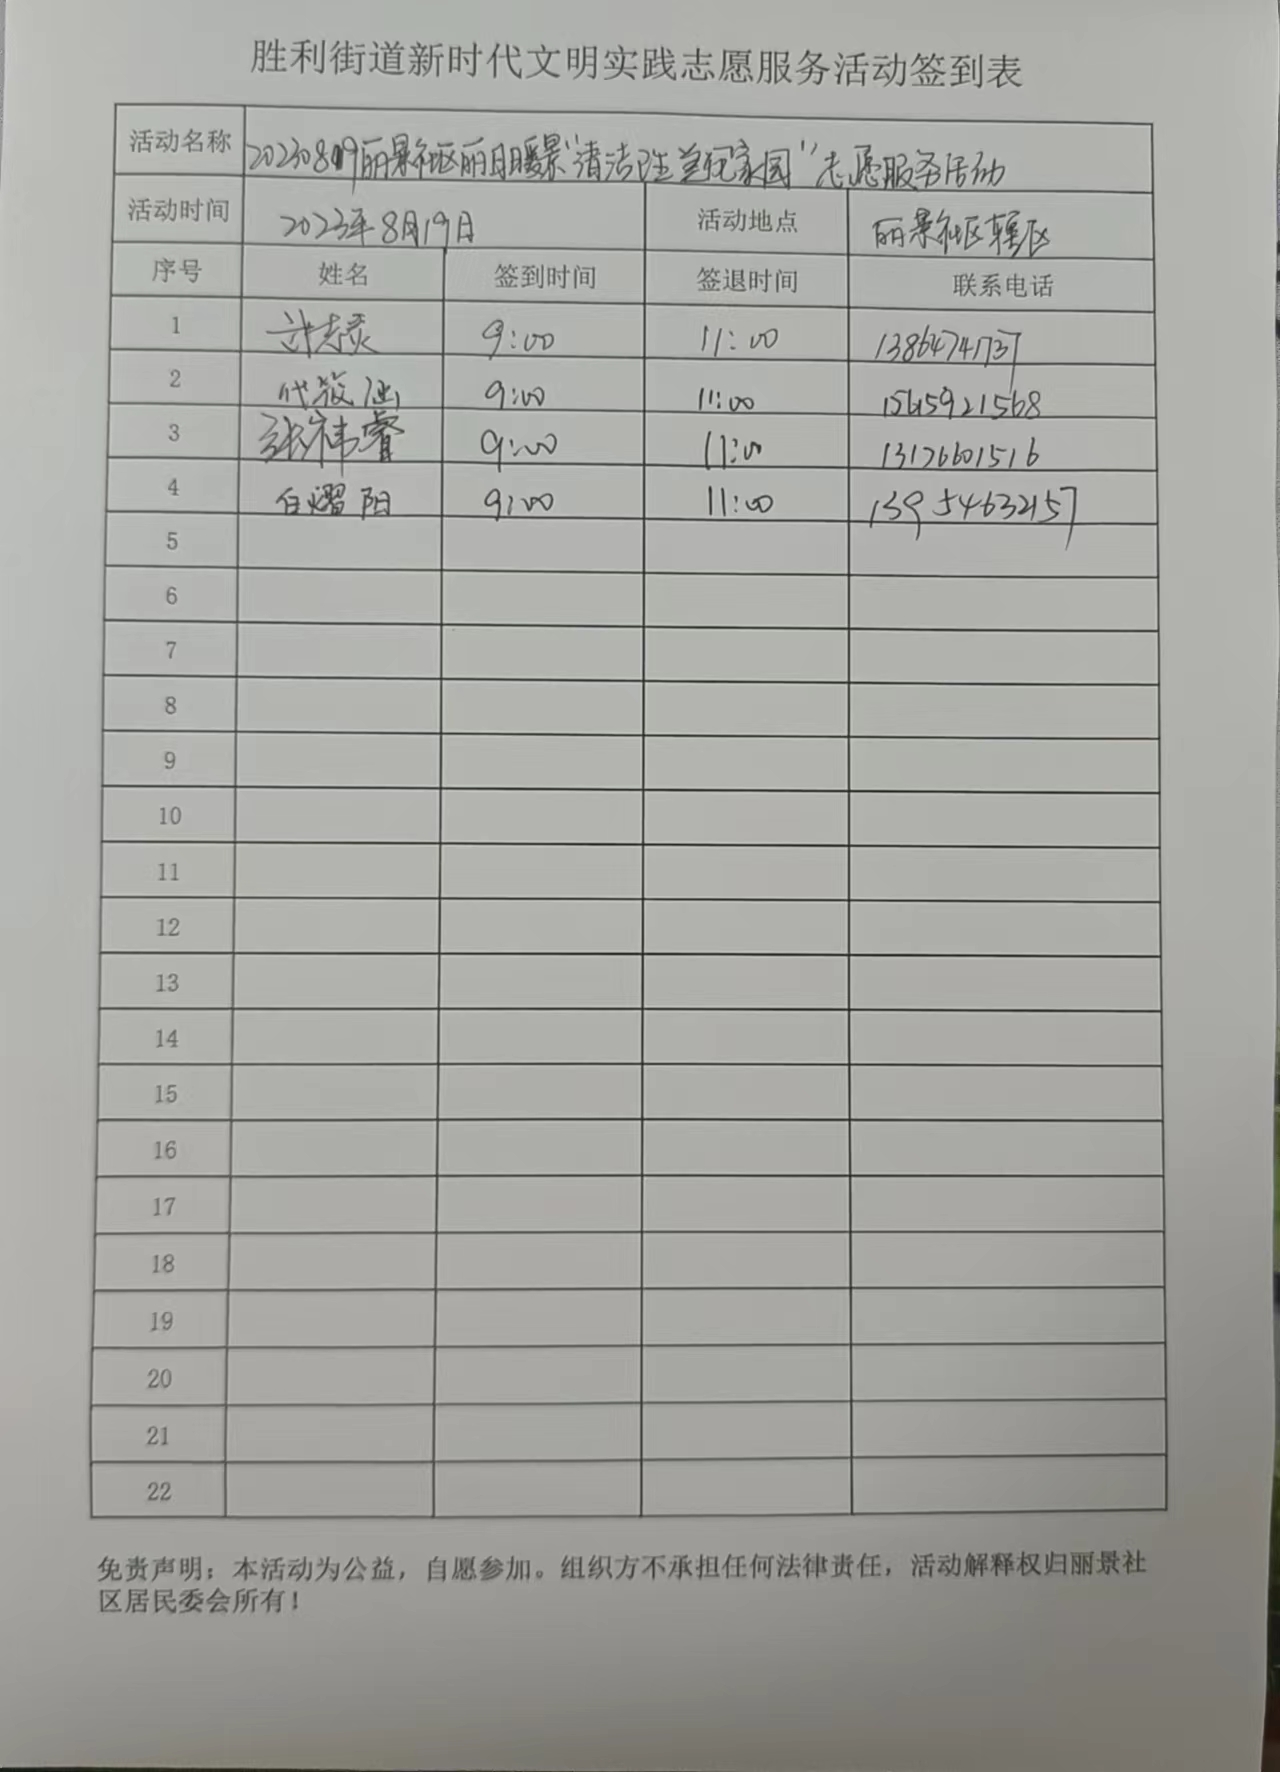 胜利街道新时代文明实践志愿服务活动签到表
活动名称 20230819丽景社区丽日暖景“清洁卫生 家园”志愿服务活动
活动时间 2023年8月19日 活动地点 丽景社区辖区
序号 姓名 签到时间 签退时间 联系电话
1 9:00 11:00 13864741737
2 代筱涵 9:00 11:00 15615921568
3 张祎睿 9:00 11:00 13176601516
4 白熠阳 9:00 11:00 13954632157
5
6
7
8
9
10
11
12
13
14
15
16
17
18
19
20
21
22
免责声明：本活动为公益，自愿参加。组织方不承担任何法律责任，活动解释权归丽景社
区居民委会所有！